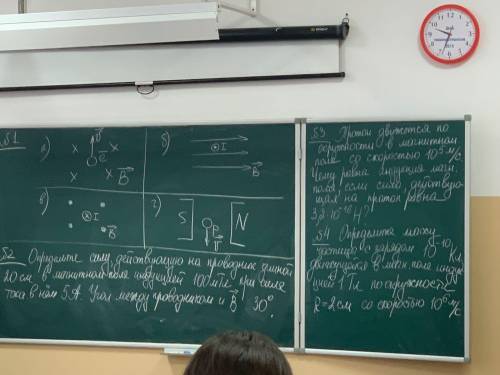 §1
а)
б)
x x
x x
ē
B
I
B
в)
г)
I
B
S
p
N
§2 Определите силу, действующую на проводник длиной
20 см в магнитном поле индукцией 100 мТл при силе
тока в нём 5 А. Угол между проводником и B 30°.
§3 Протон движется по
окружности в магнитном
поле со скоростью 10⁵ м/с
Чему равна индукция магн.
поля, если сила действую-
щая на протон равна
§4 Определите массу
частицы с зарядом 10⁻¹⁰ Кл,
движущейся в магн. поле индук-
цией 1 Тл по окружности
R = 2 см со скоростью 10⁶ м/с
12
1
2
3
4
5
6
7
8
9
10
11